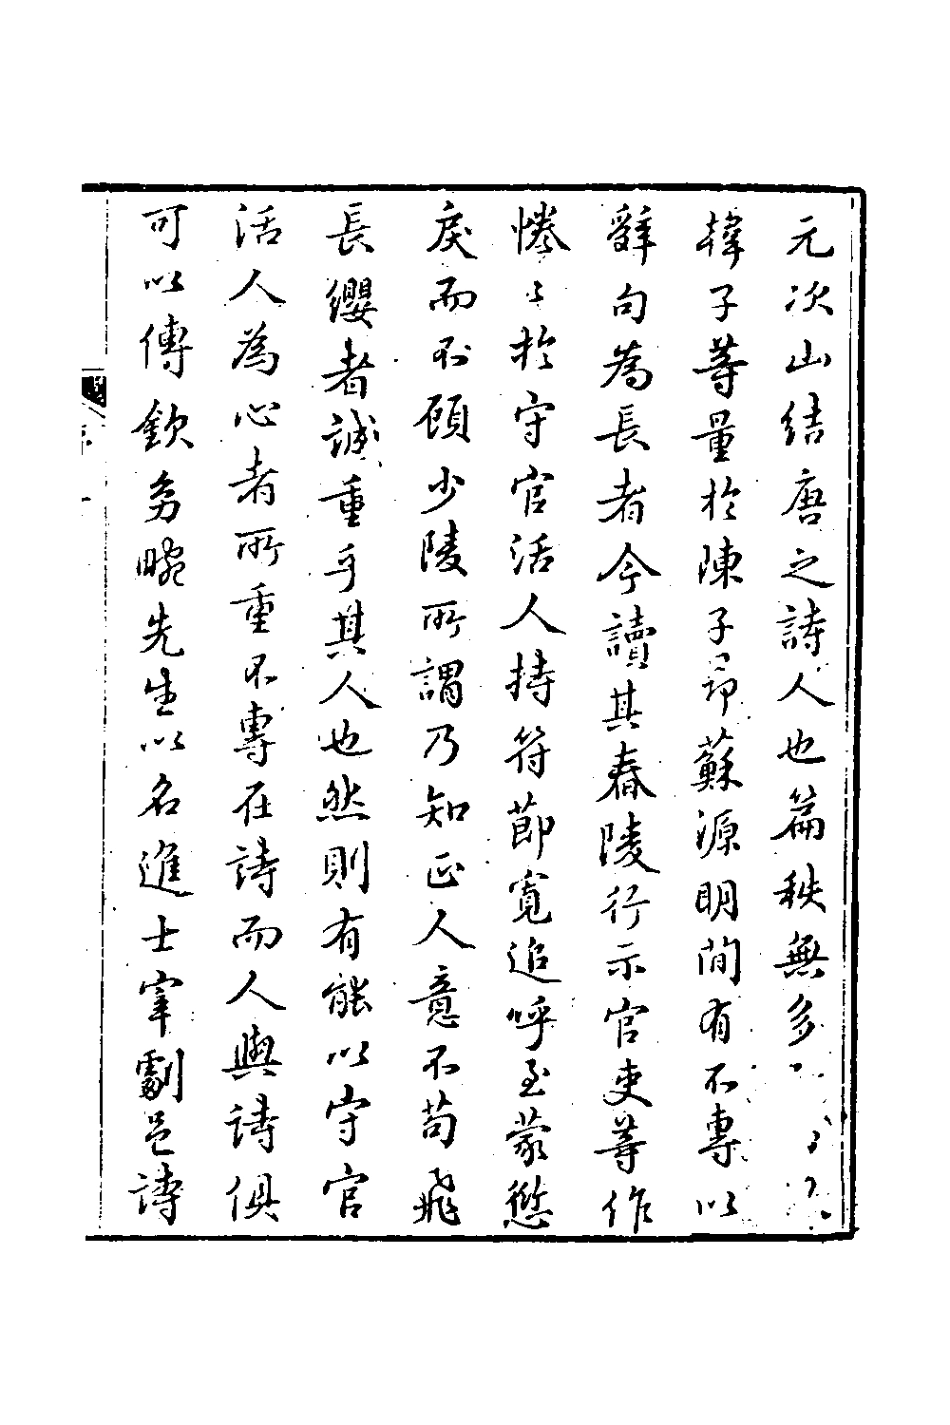 元次山結唐之詩人也篇秩無多
韓子等量於陳子昂蘇源明間有不專以
辭句為長者今讀其舂陵行示官吏等作
惓〻於守官活人持符節寬追呼至蒙愆
戾而不顧少陵所謂乃知正人意不苟飛
長纓者誠重乎其人也然則有能以守官
活人為心者所重不專在詩而人與詩俱
可以傳歙芻畹先生以名進士宰劇邑詩